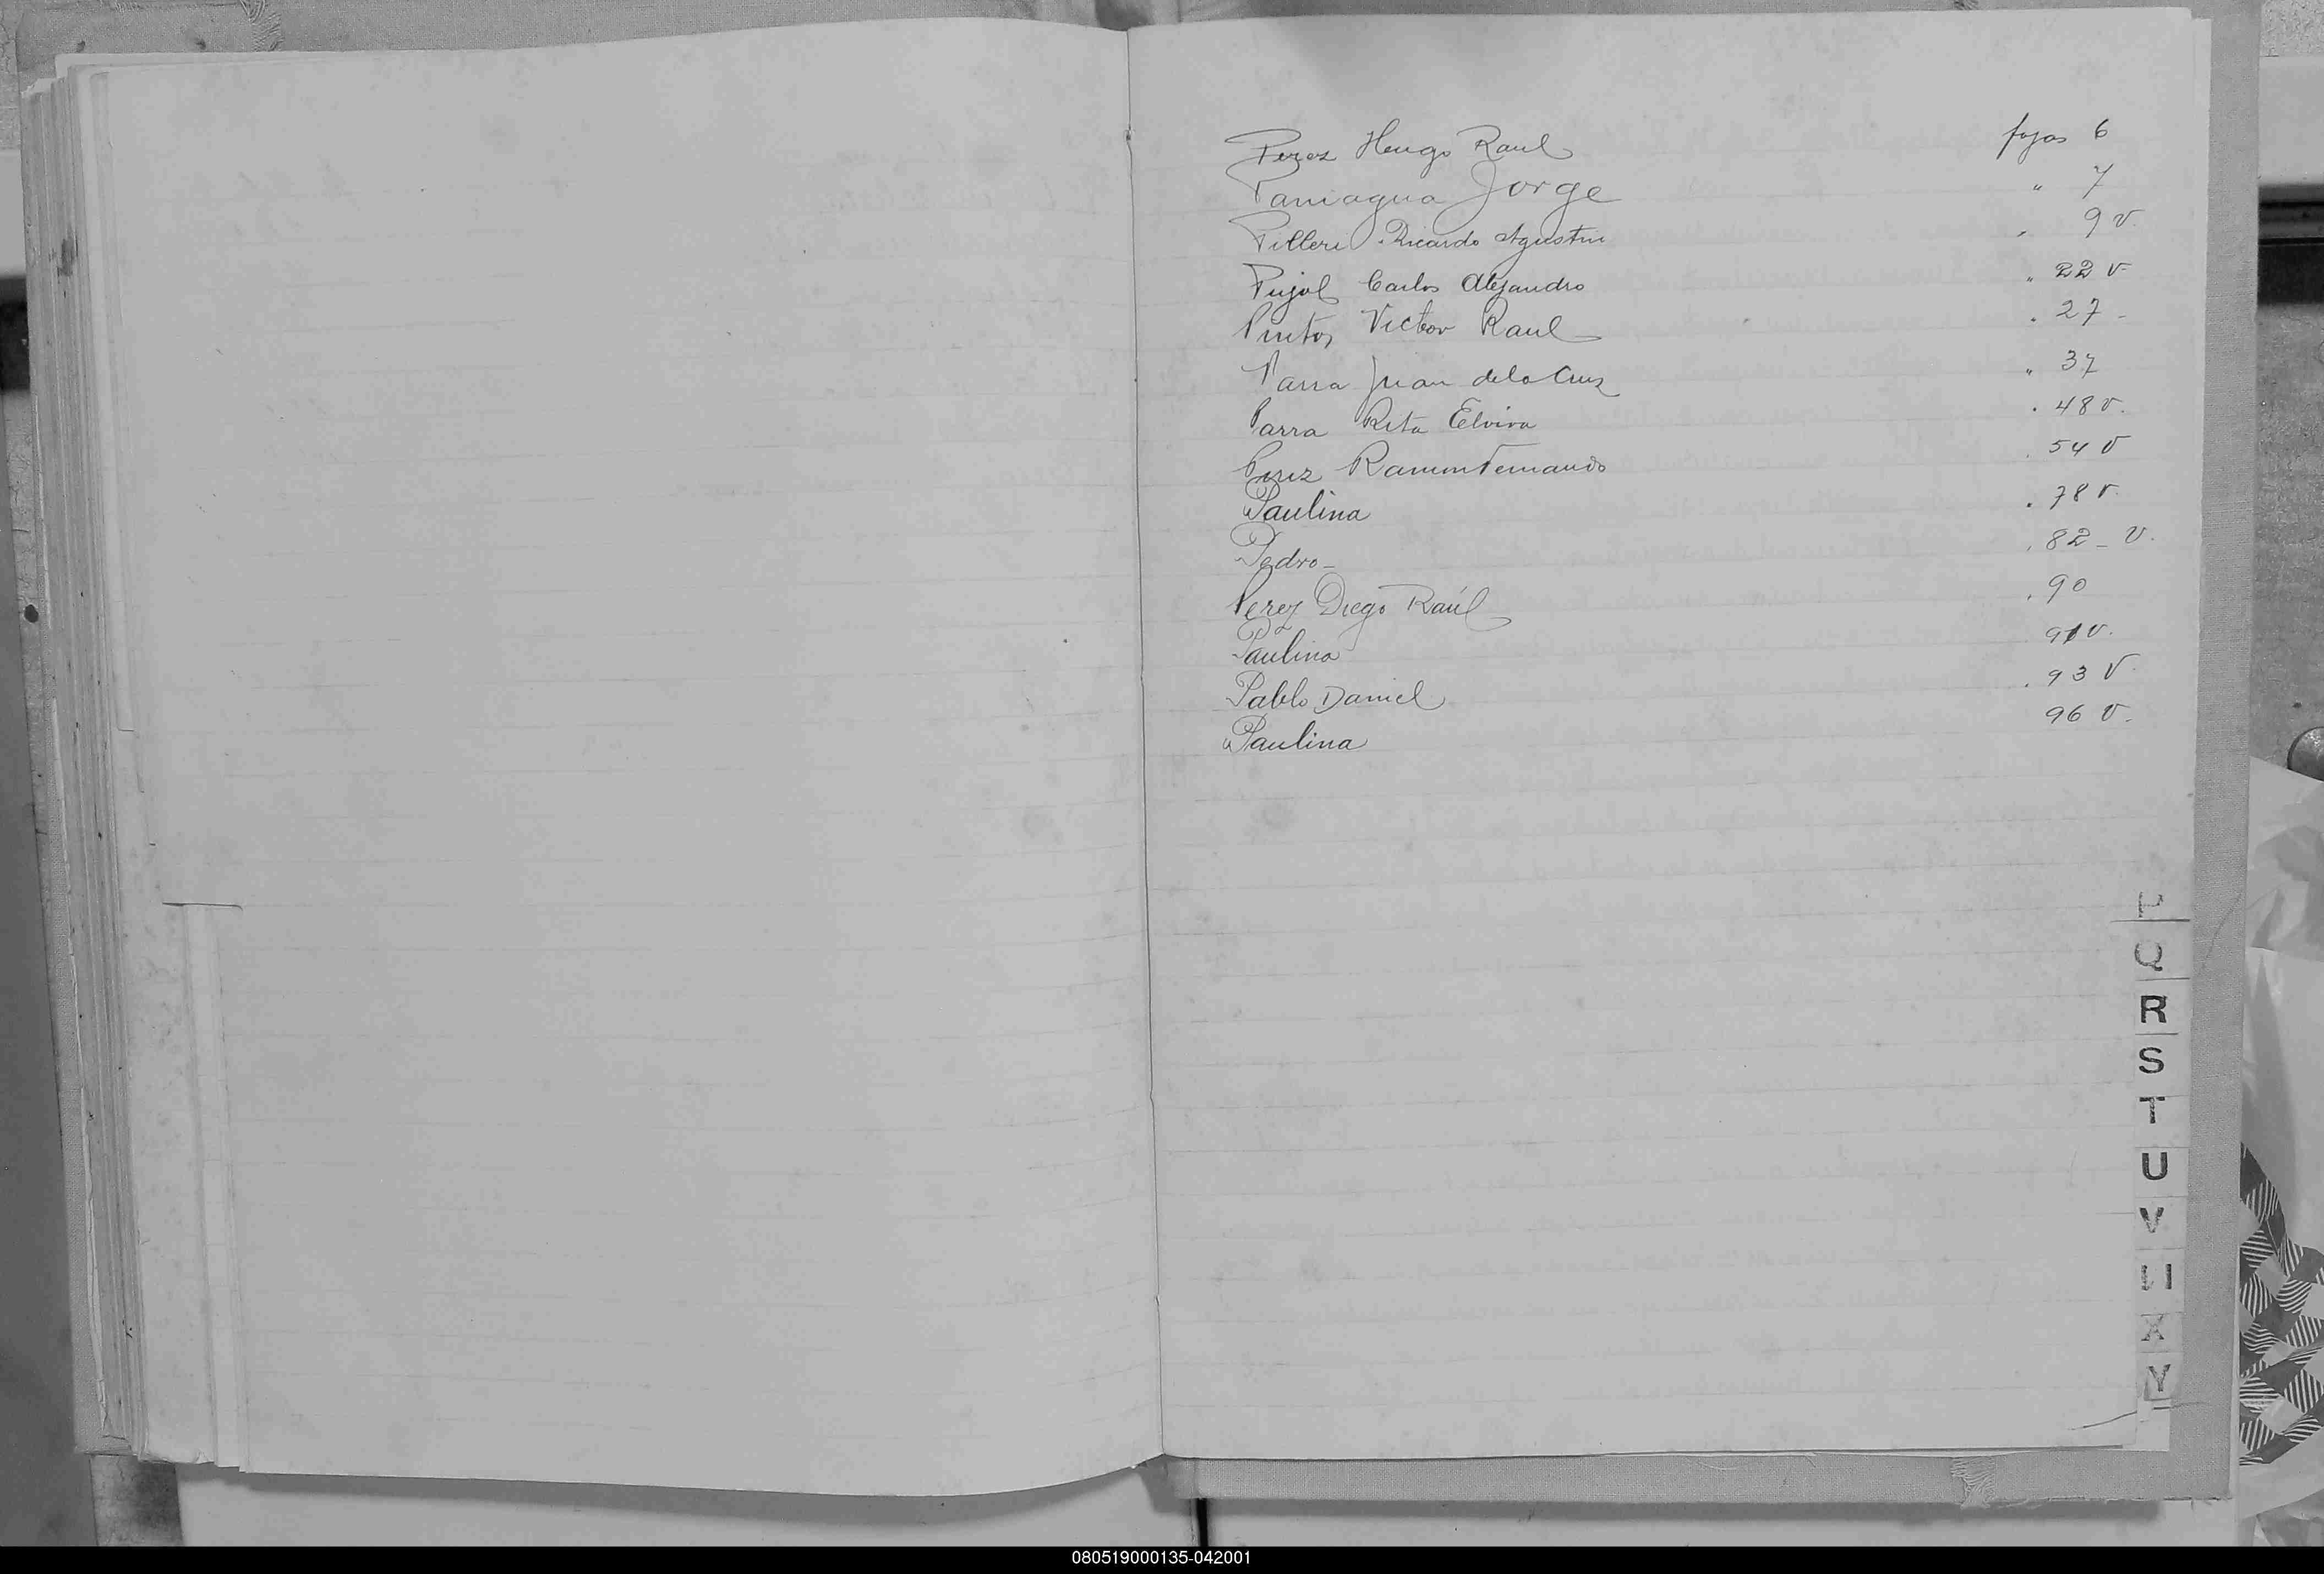 Perez Hugo Raul fojas 6
Paniagua Jorge " 7
Pilleri Ricardo Agustin " 9 v.
Pujol Carlos Alejandro " 22 v.
Pintos Victor Raul " 27 -
Parra Juan de la Cruz " 37
Parra Rita Elvira " 48 v.
Ramon Fernando " 54 v
Paulina " 78 v.
Pedro - " 82 - v.
Perez Diego Raúl " 90
Paulina 91 v.
Pablo Daniel " 93 v.
Paulina 96 v.
P
Q
R
S
T
U
V
X
Y
080519000135-042001